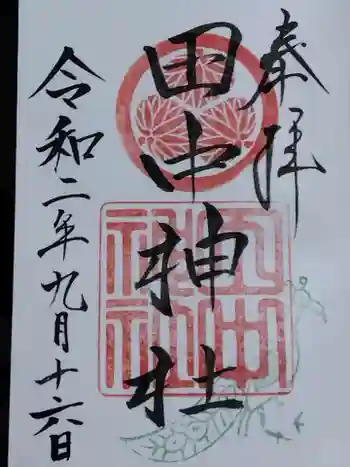 奉拝
田中神社
田中神社
令和二年九月十六日